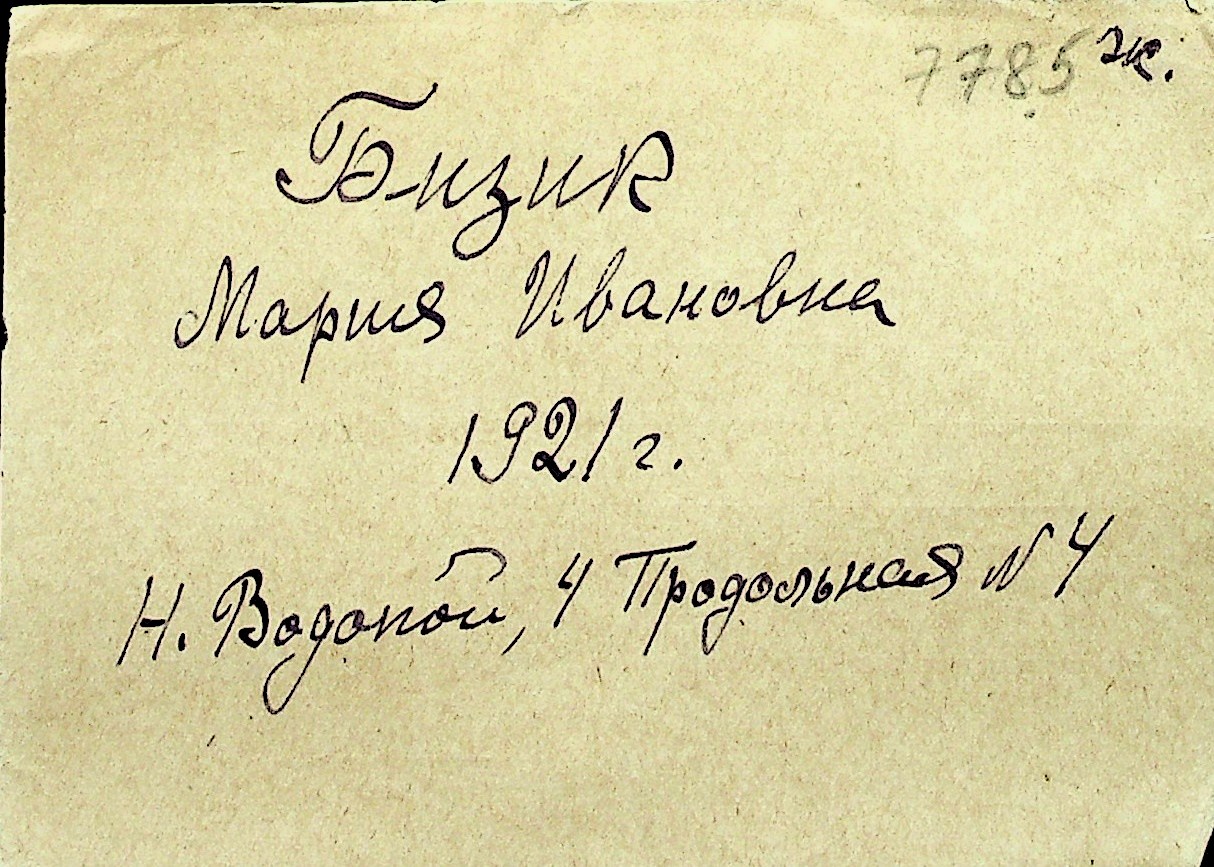 7785 ж.
Бизик
Мария Ивановна
1921 г.
Н. Водопой, 4 Продольная № 4